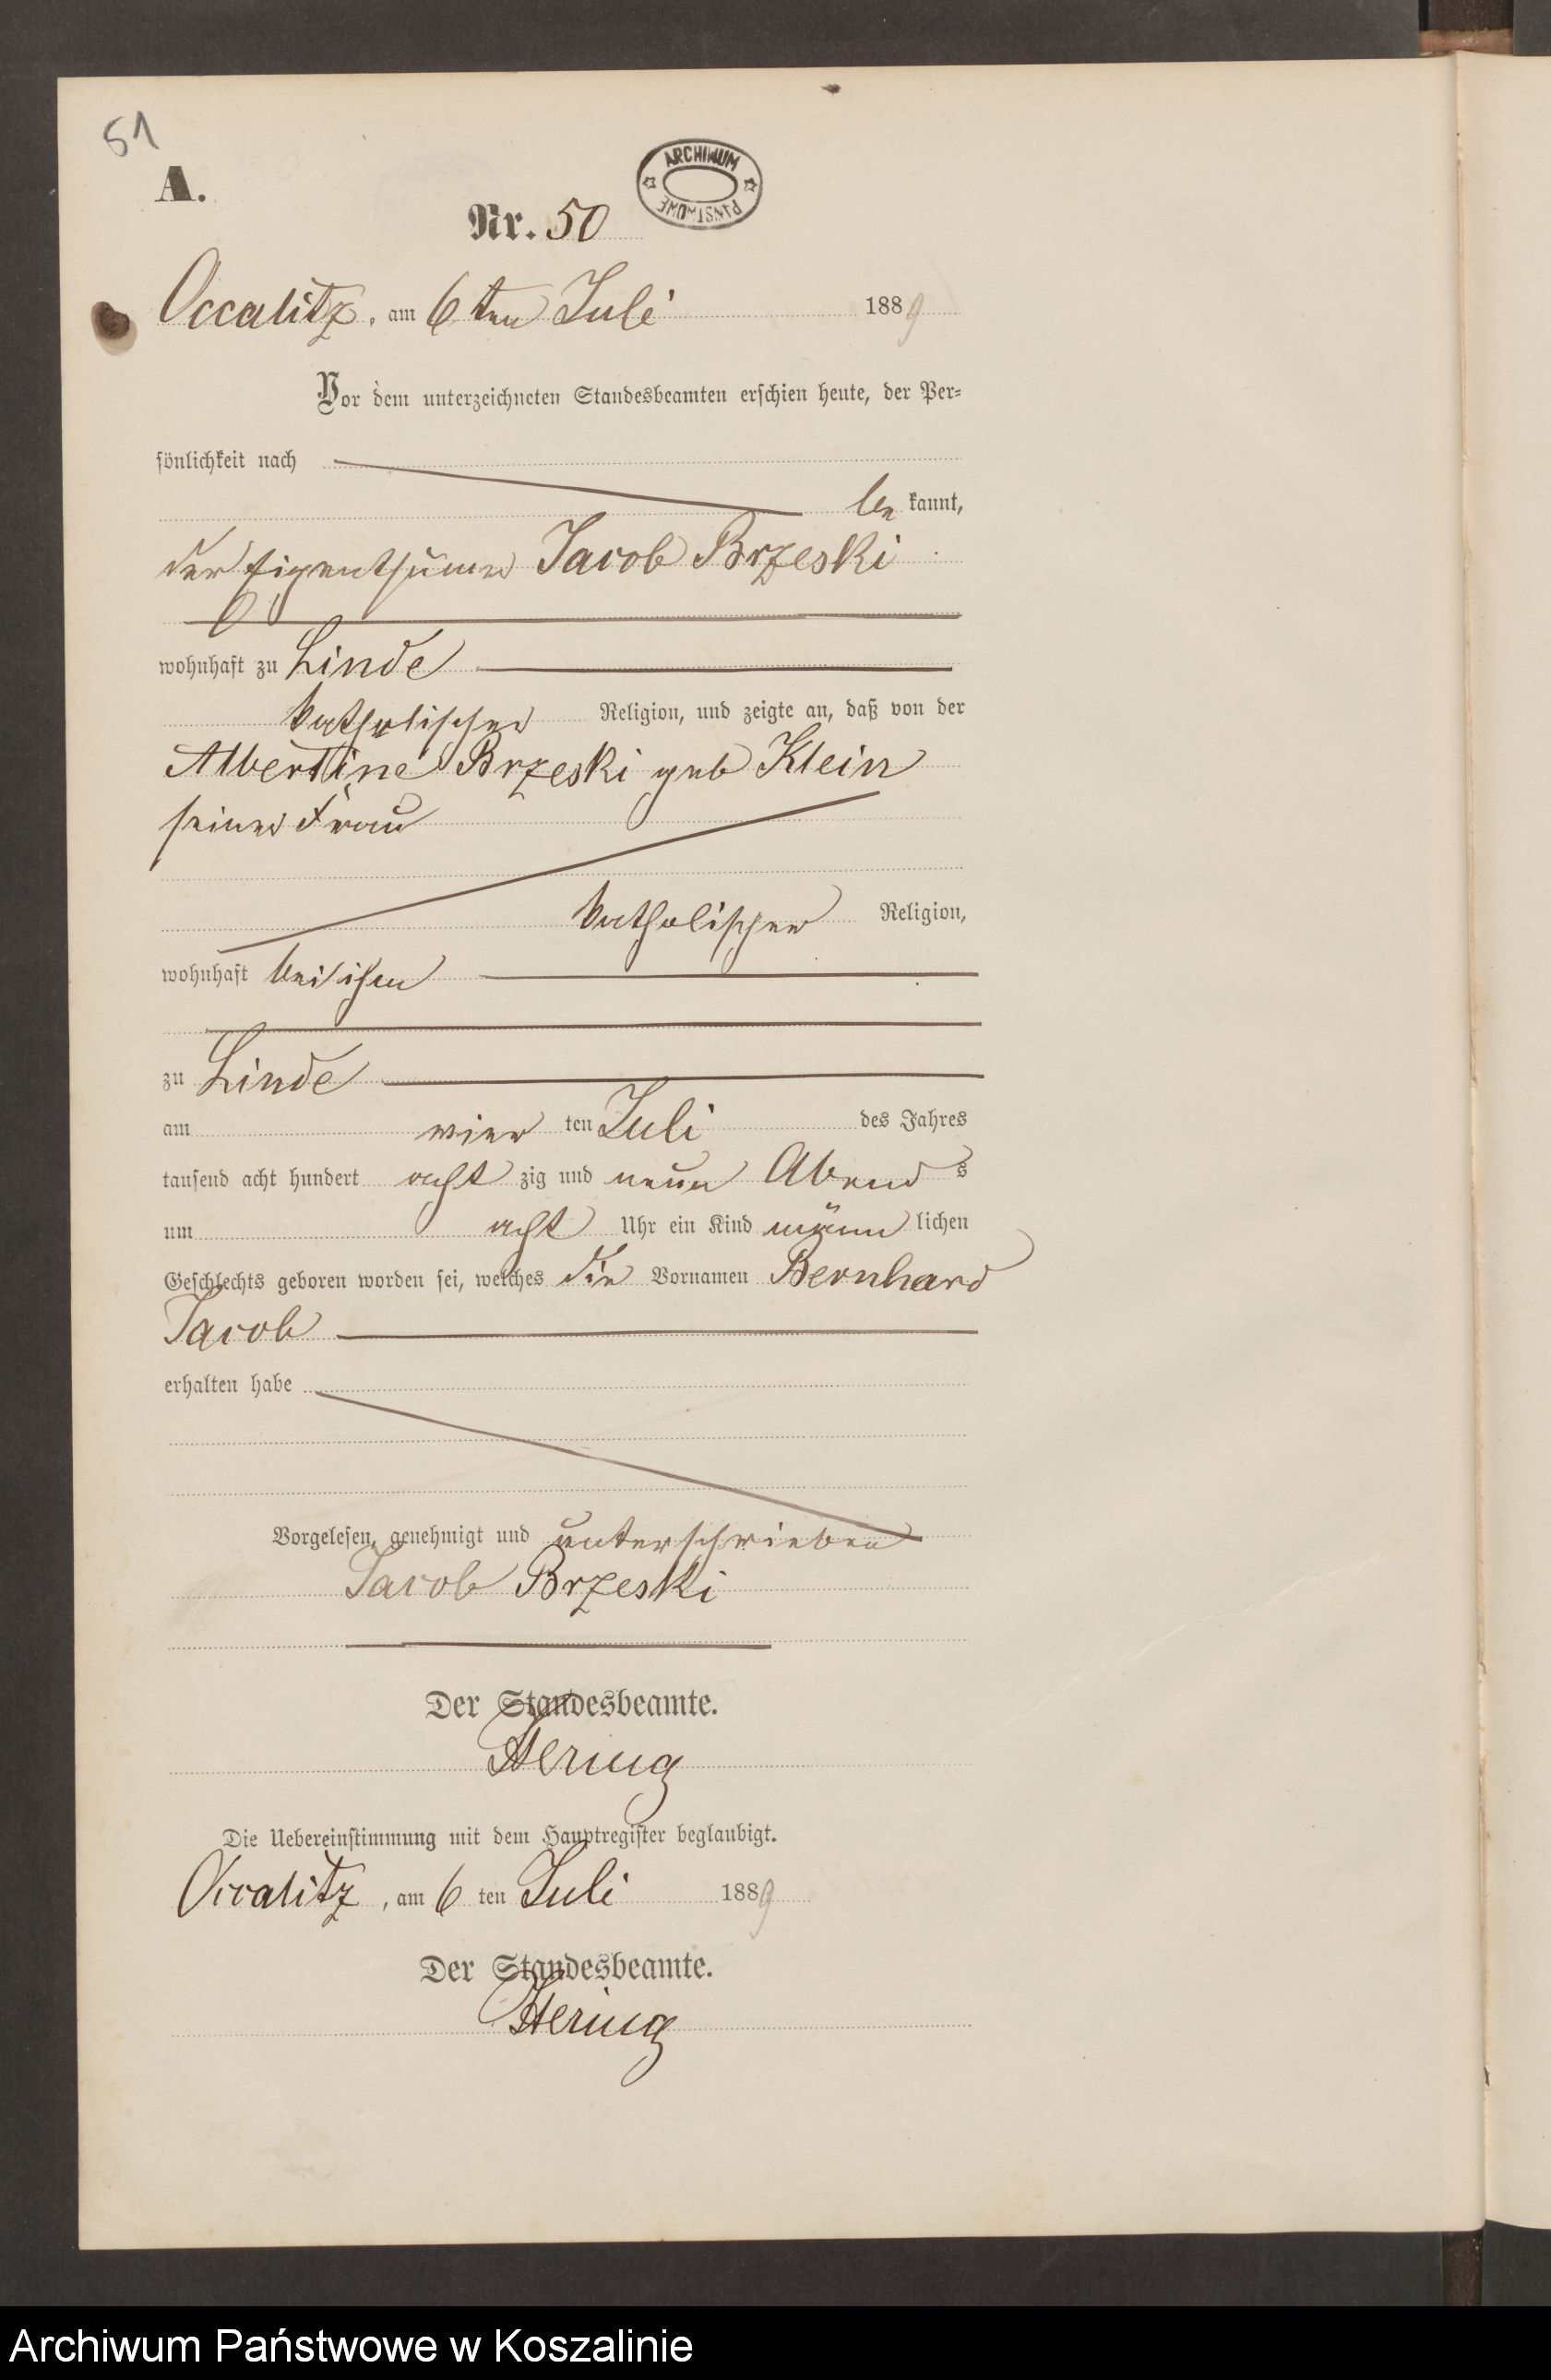 51
A.
ARCHIWUM PAŃSTWOWE
Nr. 50
Occalitz, am 6ten Juli 1889
Vor dem unterzeichneten Standesbeamten erschien heute, der Per-
sönlichkeit nach
be kannt,
der Eigenthümer Jacob Brzeski
wohnhaft zu Linde
katholischer Religion, und zeigte an, daß von der
Albertine Brzeski geb Klein
seiner Frau
katholischer Religion,
wohnhaft bei ihm
zu Linde
am vier ten Juli des Jahres
tausend acht hundert acht zig und neun Abend s
um acht Uhr ein Kind männ lichen
Geschlechts geboren worden sei, welches die Vornamen Bernhard
Jacob
erhalten habe
Vorgelesen, genehmigt und unterschrieben
Jacob Brzeski
Der Standesbeamte.
Hering
Die Uebereinstimmung mit dem Hauptregister beglaubigt.
Occalitz, am 6 ten Juli 1889
Der Standesbeamte.
Hering
Archiwum Państwowe w Koszalinie